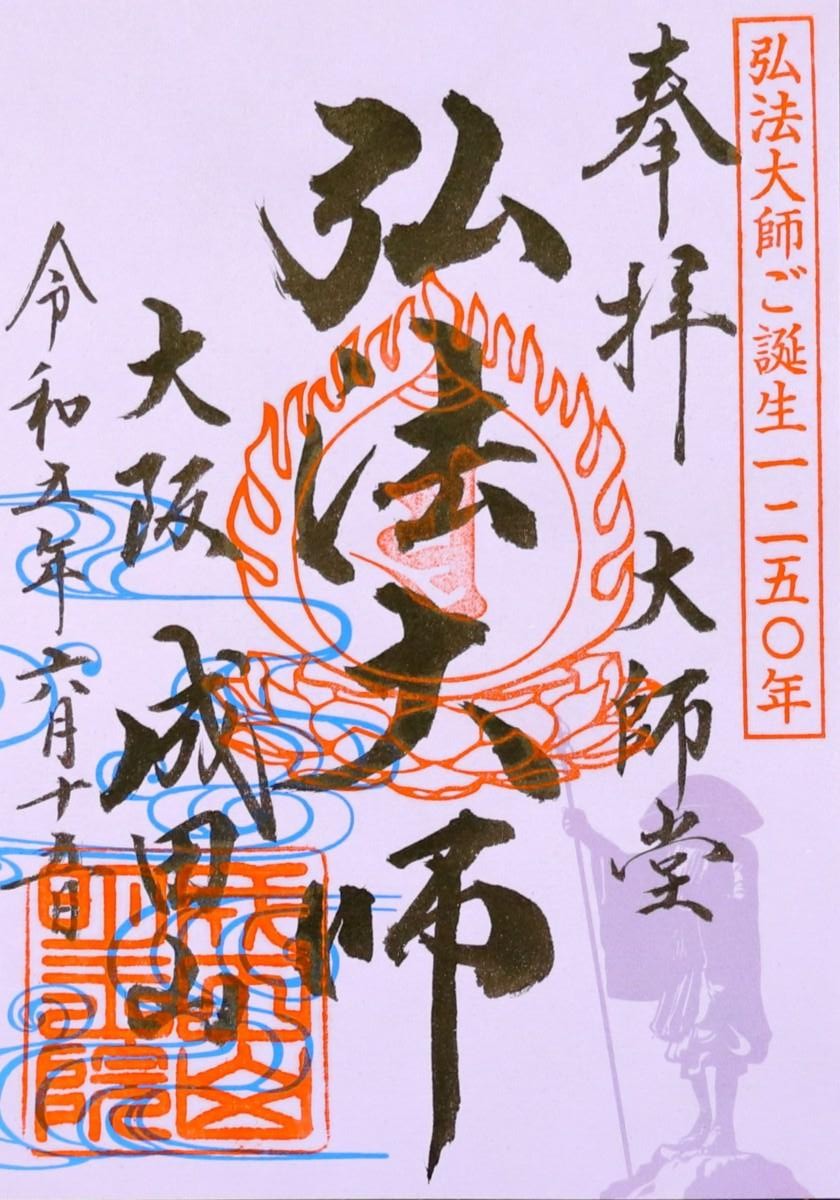 弘法大師ご誕生一二五〇年
奉拝
大師堂
弘法大師
大阪
成田山
令和五年六月十五日
成田山
明王院